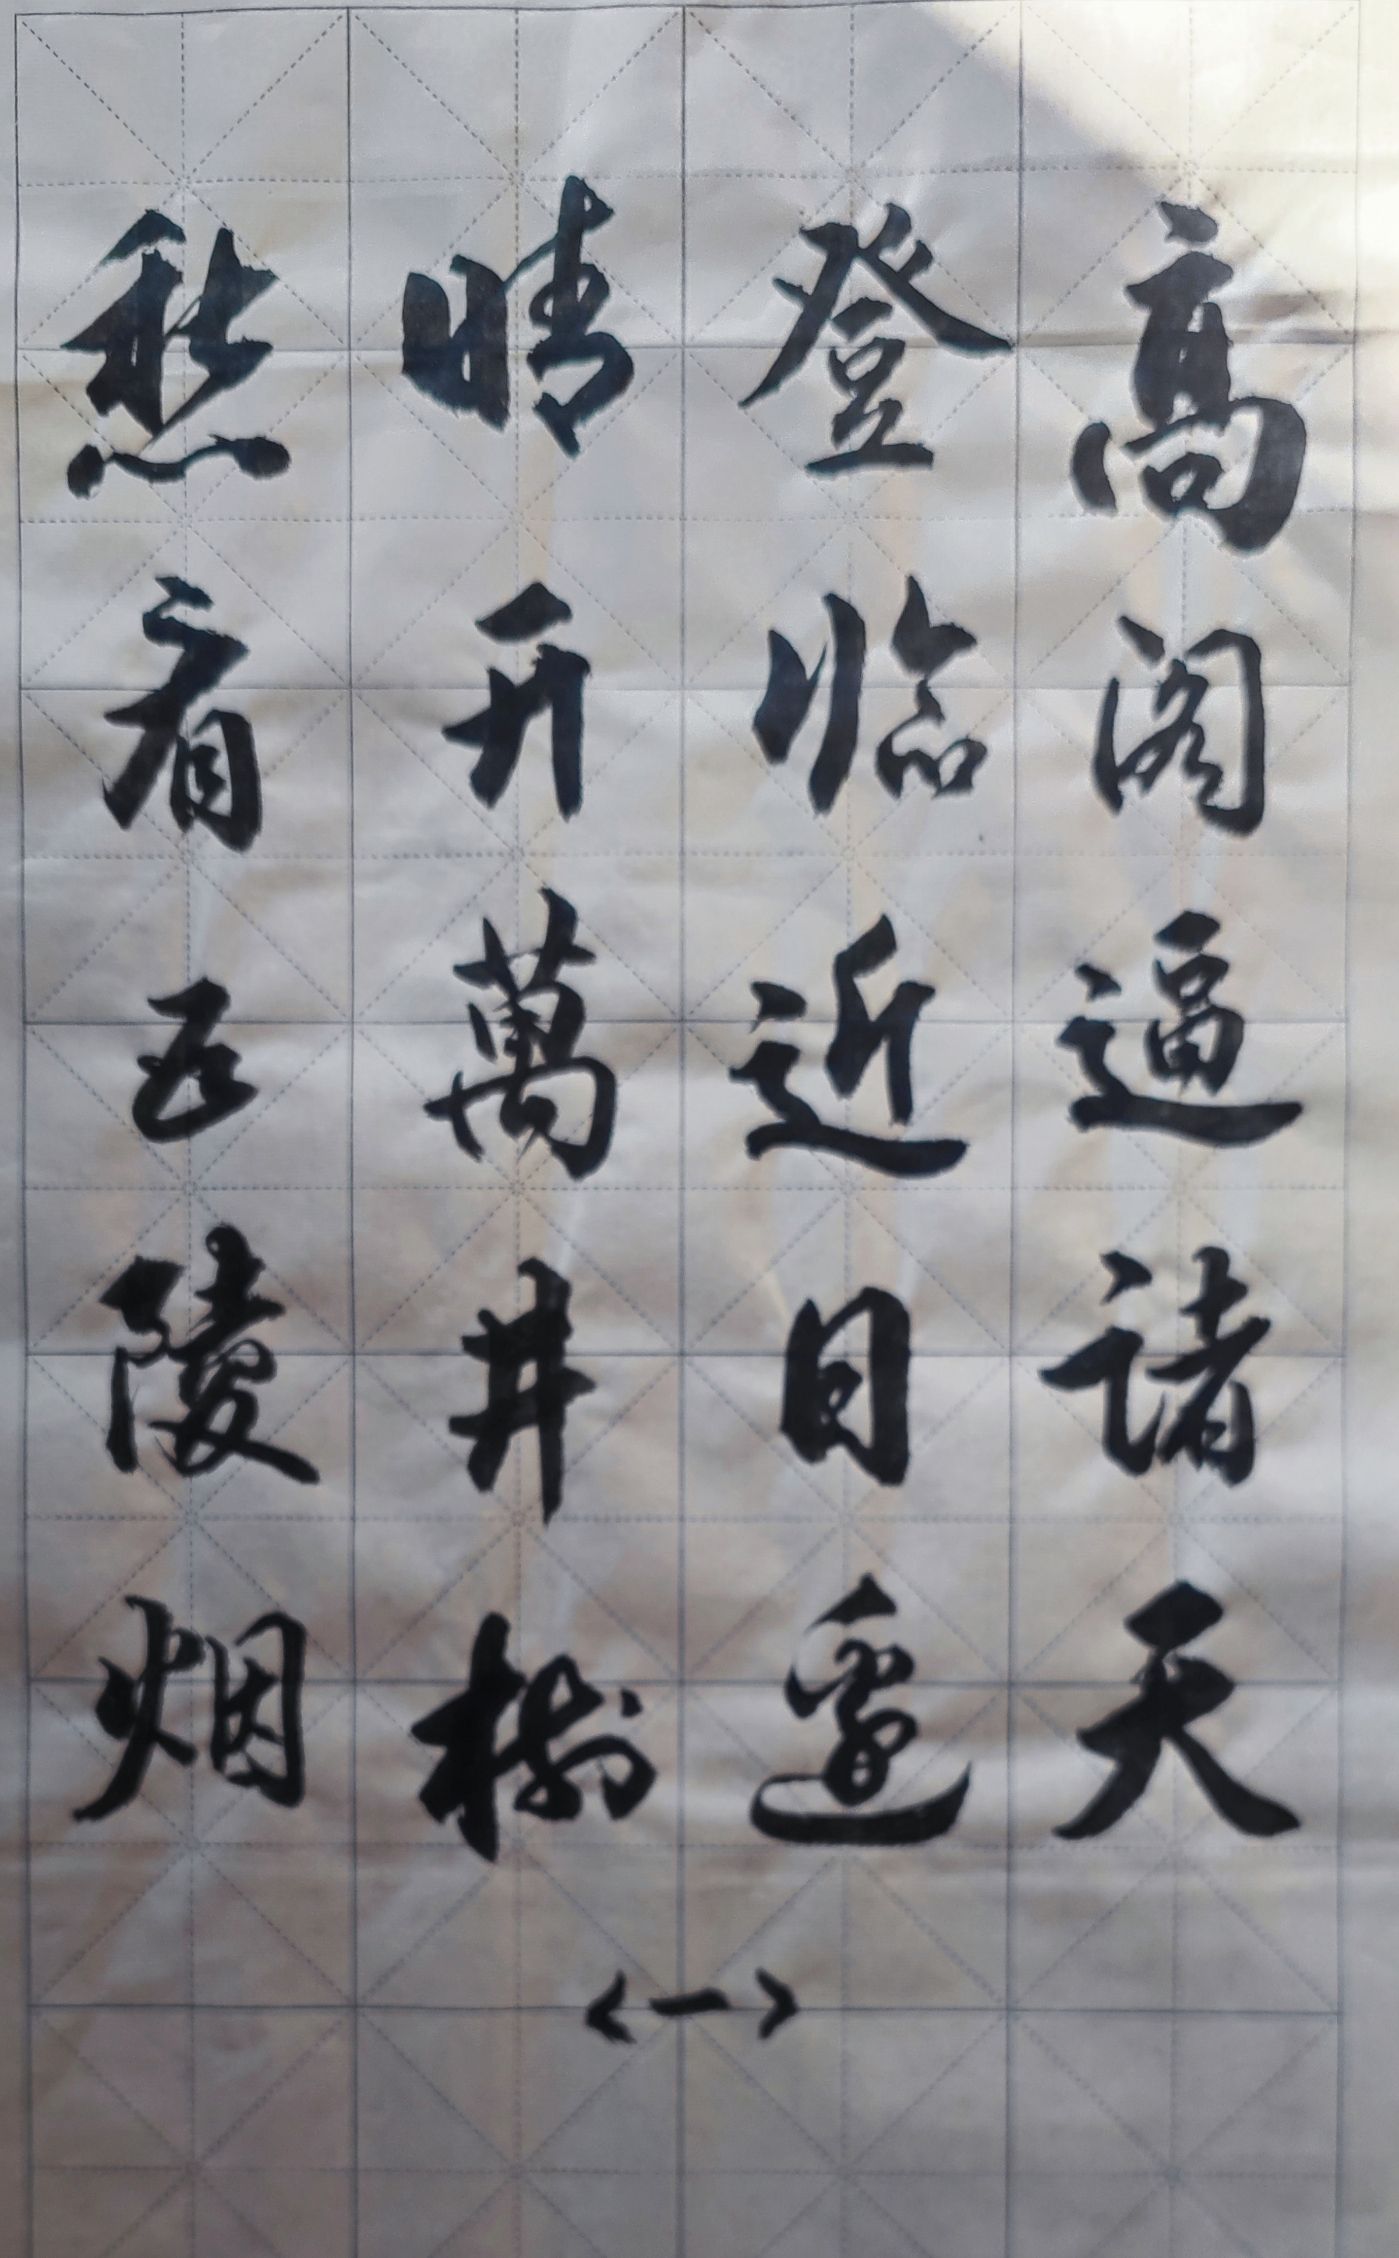 高阁逼诸天
登临近日邊
晴开萬井樹
愁看五陵烟
<一>